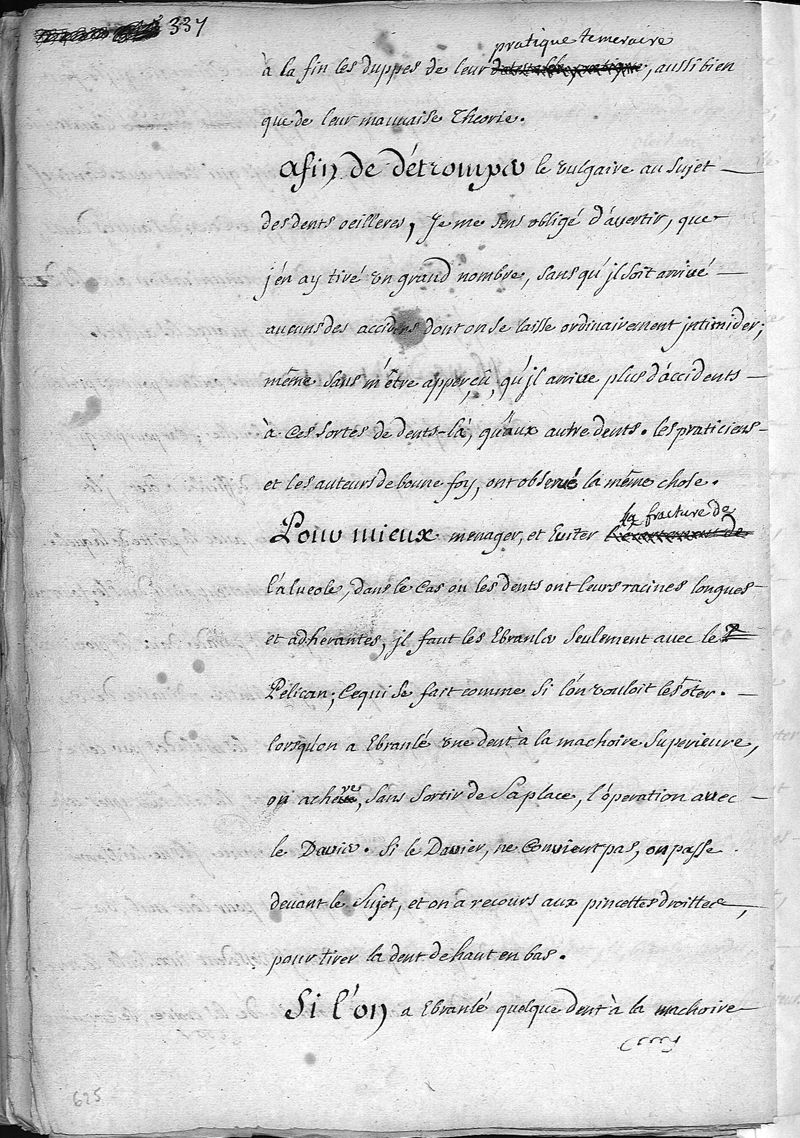 337
pratique temeraire
à la fin les duppes de leur, aussi bien
que de leur mauvaise Theorie.
Afin de détromper le vulgaire au sujet
des dents oeilleres, Je me sens obligé d'avertir, que
j'en ay tiré un grand nombre, sans qu'il soit arrivé
aucuns des accidens dont on se laisse ordinairement jntimider;
même sans m'être apperçu, qu'jl arrive plus d'accidents
à ces sortes de dents-là, qu'aux autre dents. les praticiens
et les auteurs de bonne foy, ont observé la même chose.
la fracture de
Pour mieux menager, et Eviter
l'alveole, dans le Cas ou les dents ont leurs racines longues
et adherantes, jl faut les Ebranler seulement avec le
Pelican; Ce qui se fait comme si l'on vouloit les oter.
lorsqu'on a Ebranlé une dent à la machoire Superieure,
on acheve, sans sortir de sa place, l'óperation avec
le Davier. Si le Davier, ne Convient pas, on passe
devant le Sujet, et on a recours aux pincettes droittes,
pour tirer la dent de haut en bas.
Si l'on a Ebranlé quelque dent à la machoire
625